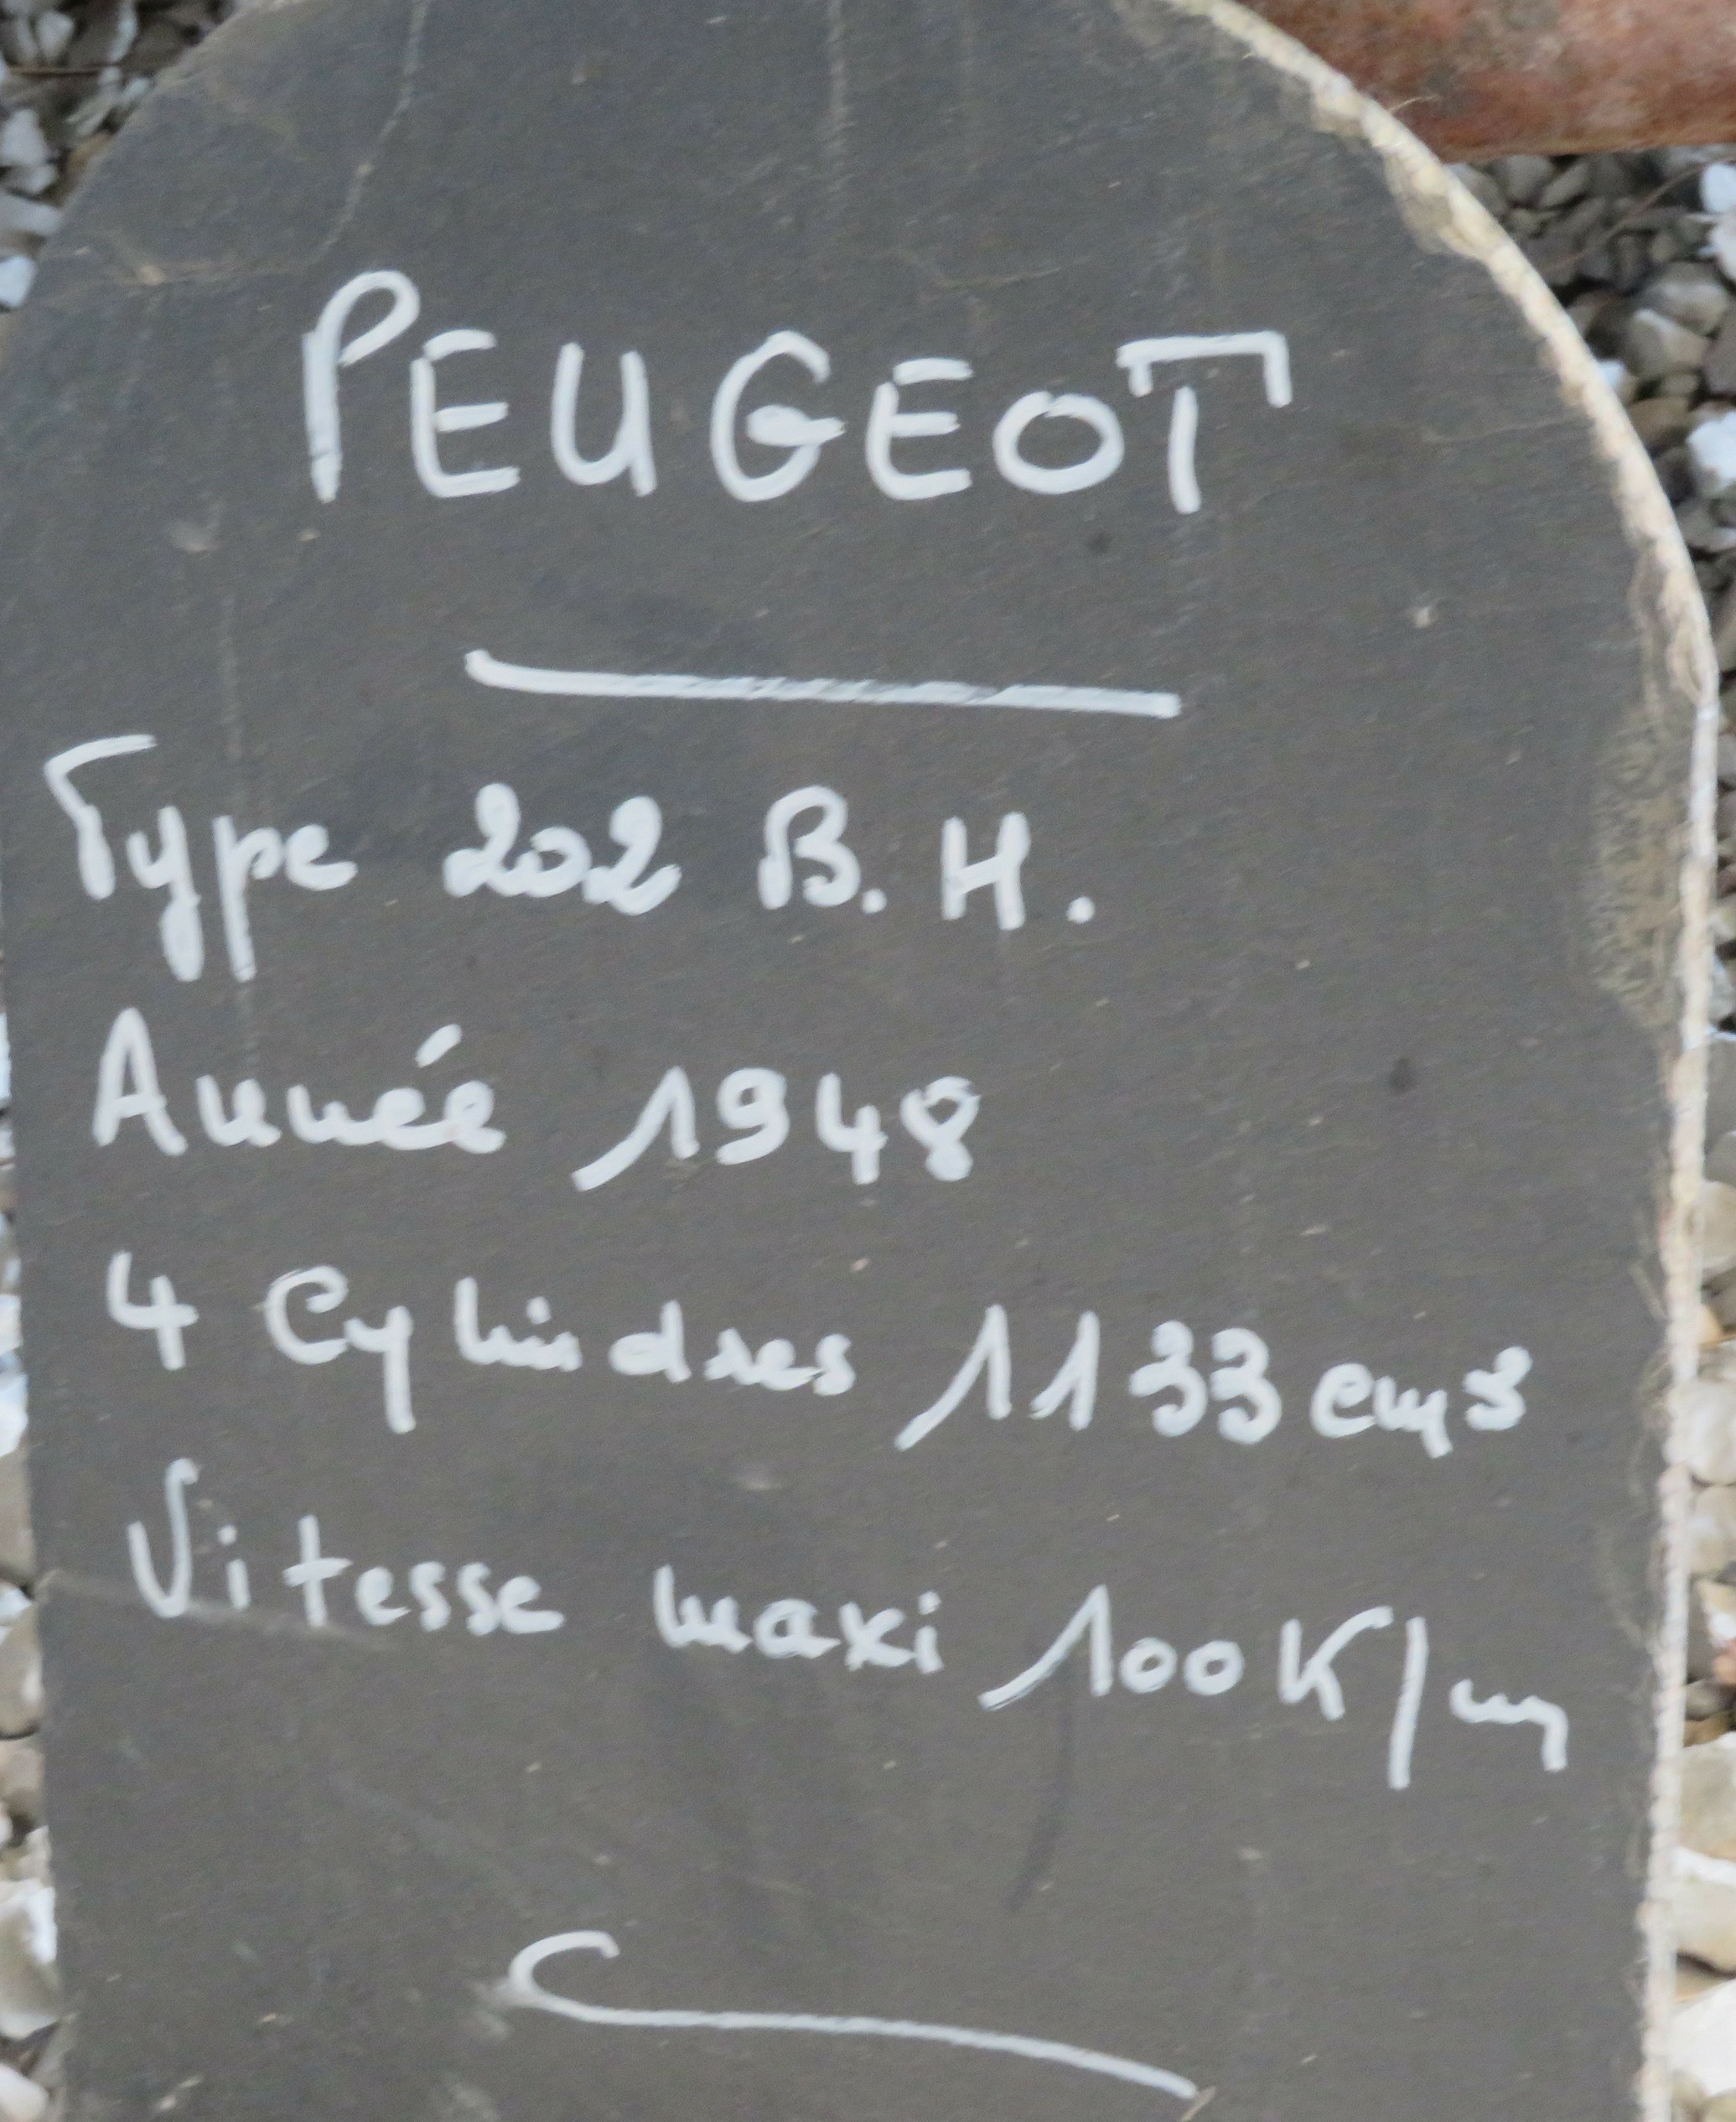 PEUGEOT
Type 202 B.H.
Année 1948
4 Cylindres 1133 cm3
Vitesse maxi 100 K/m